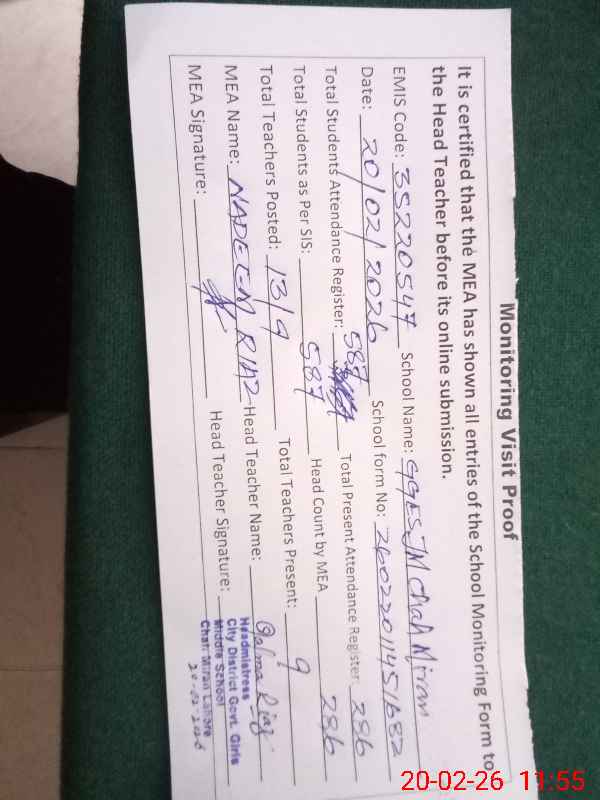 Monitoring Visit Proof
It is certified that the MEA has shown all entries of the School Monitoring Form to
the Head Teacher before its online submission.
EMIS Code: 35220547 School Name: GGES JM Chah Miran
Date: 20/02/2026 School form No:
Total Students Attendance Register: 587 Total Present Attendance Register: 286
Total Students as Per SIS: 587 Head Count by MEA 286
Total Teachers Posted: 13/9 Total Teachers Present: 9
MEA Name: NADEEM RIAZ Head Teacher Name: Riaz
MEA Signature: Head Teacher Signature:
Headmistress
City District Govt. Girls
Middle School
Chah Miran Lahore
20-02-2026
20-02-26 11:55